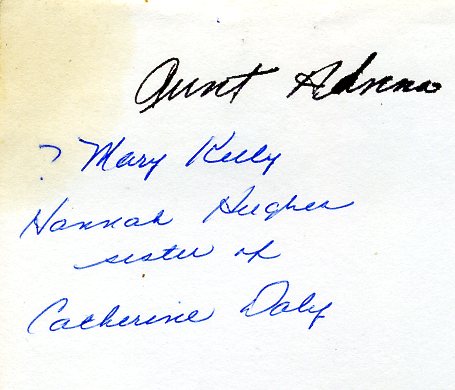 Aunt Adrena
? Mary Keely
Hannah Hughes
sister of
Catherine Daly